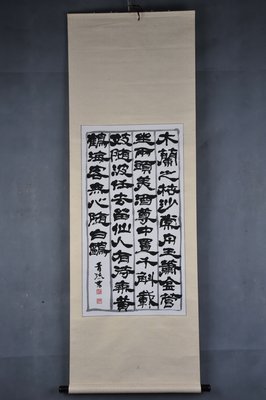 木蘭之枻沙棠舟玉簫金管
坐兩頭美酒尊中置千斛載
妓随波任去留仙人有待乘黄
鶴海客無心随白鷗